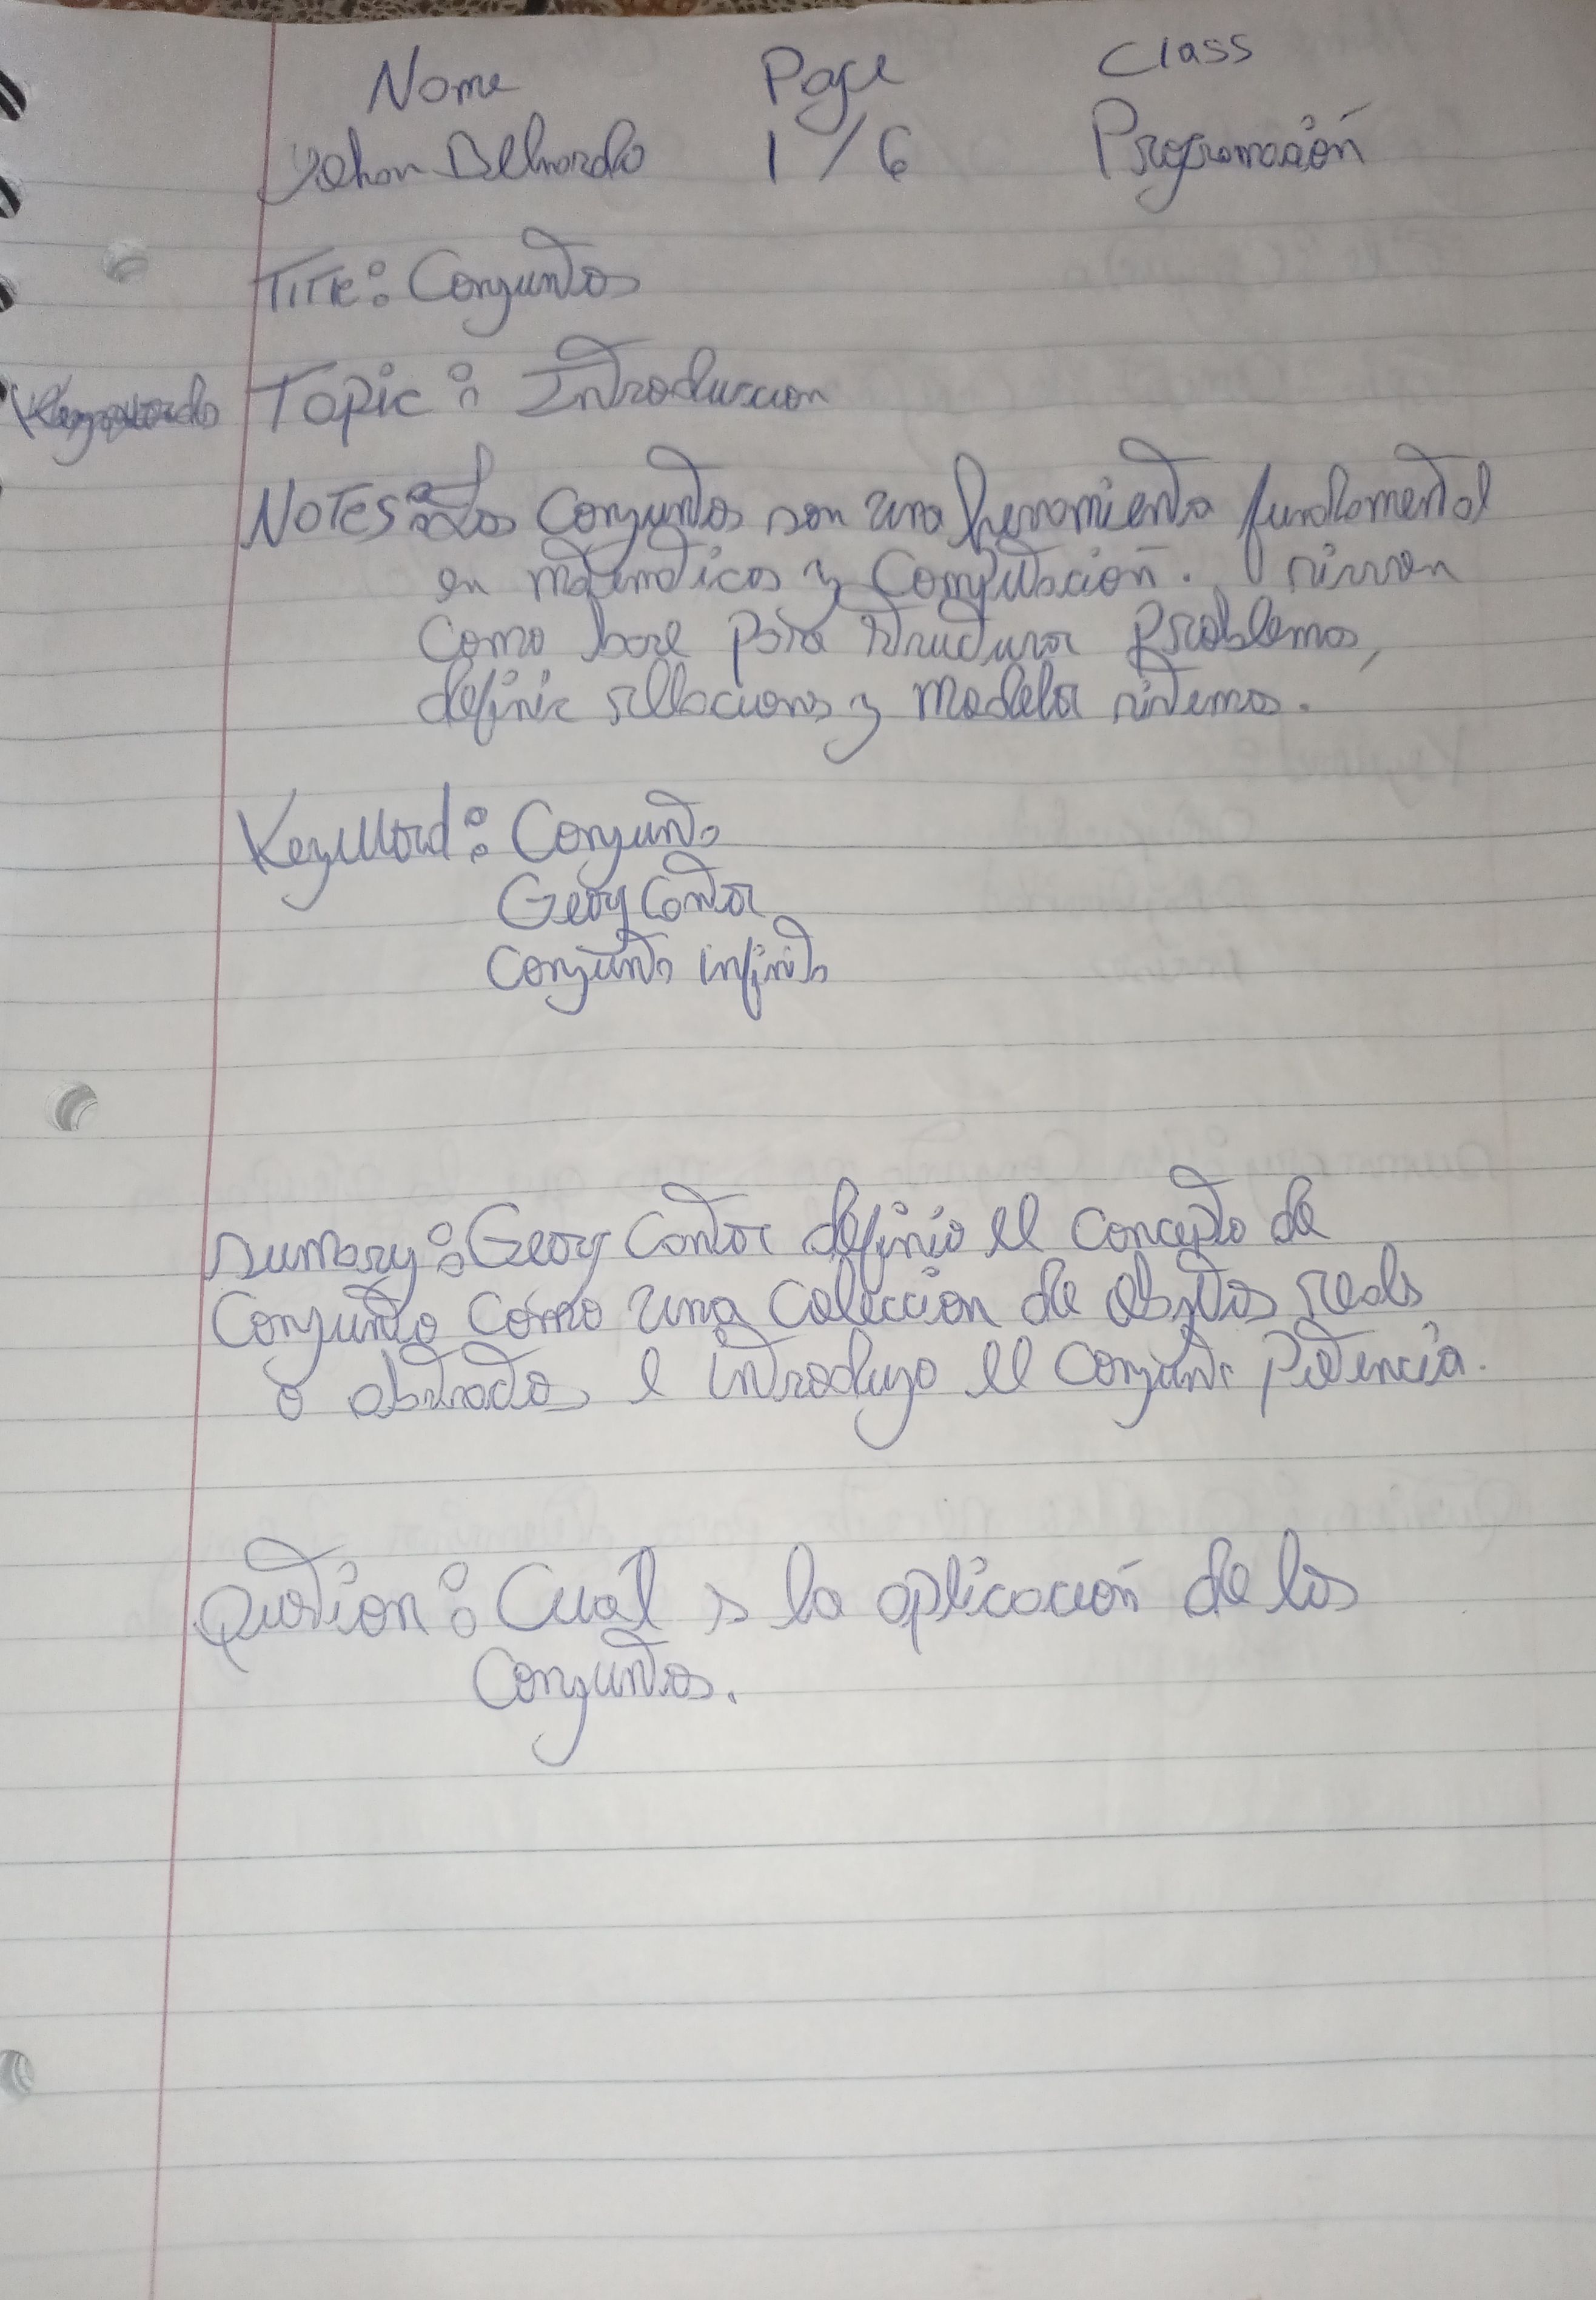 Name Page Class
Yohan Belnardo 1/6 Programación
Title: Conjuntos
Topic: Introduccion
Notes: Los Conjuntos son una herramienta fundamental
en matematicas y Computación. sirven
Como base para structurar Problemas,
definir rellaciones y modelar sistemas.
Keyword: Conjunto
Georg Cantor
Conjunto infinito
Sumary: Georg Cantor definio el concepto de
Conjunto como una coleccion de objetos reals
o abstractos e introdujo el conjunto Potencia.
Qustion: Cuál s la aplicación de los
Conjuntos.